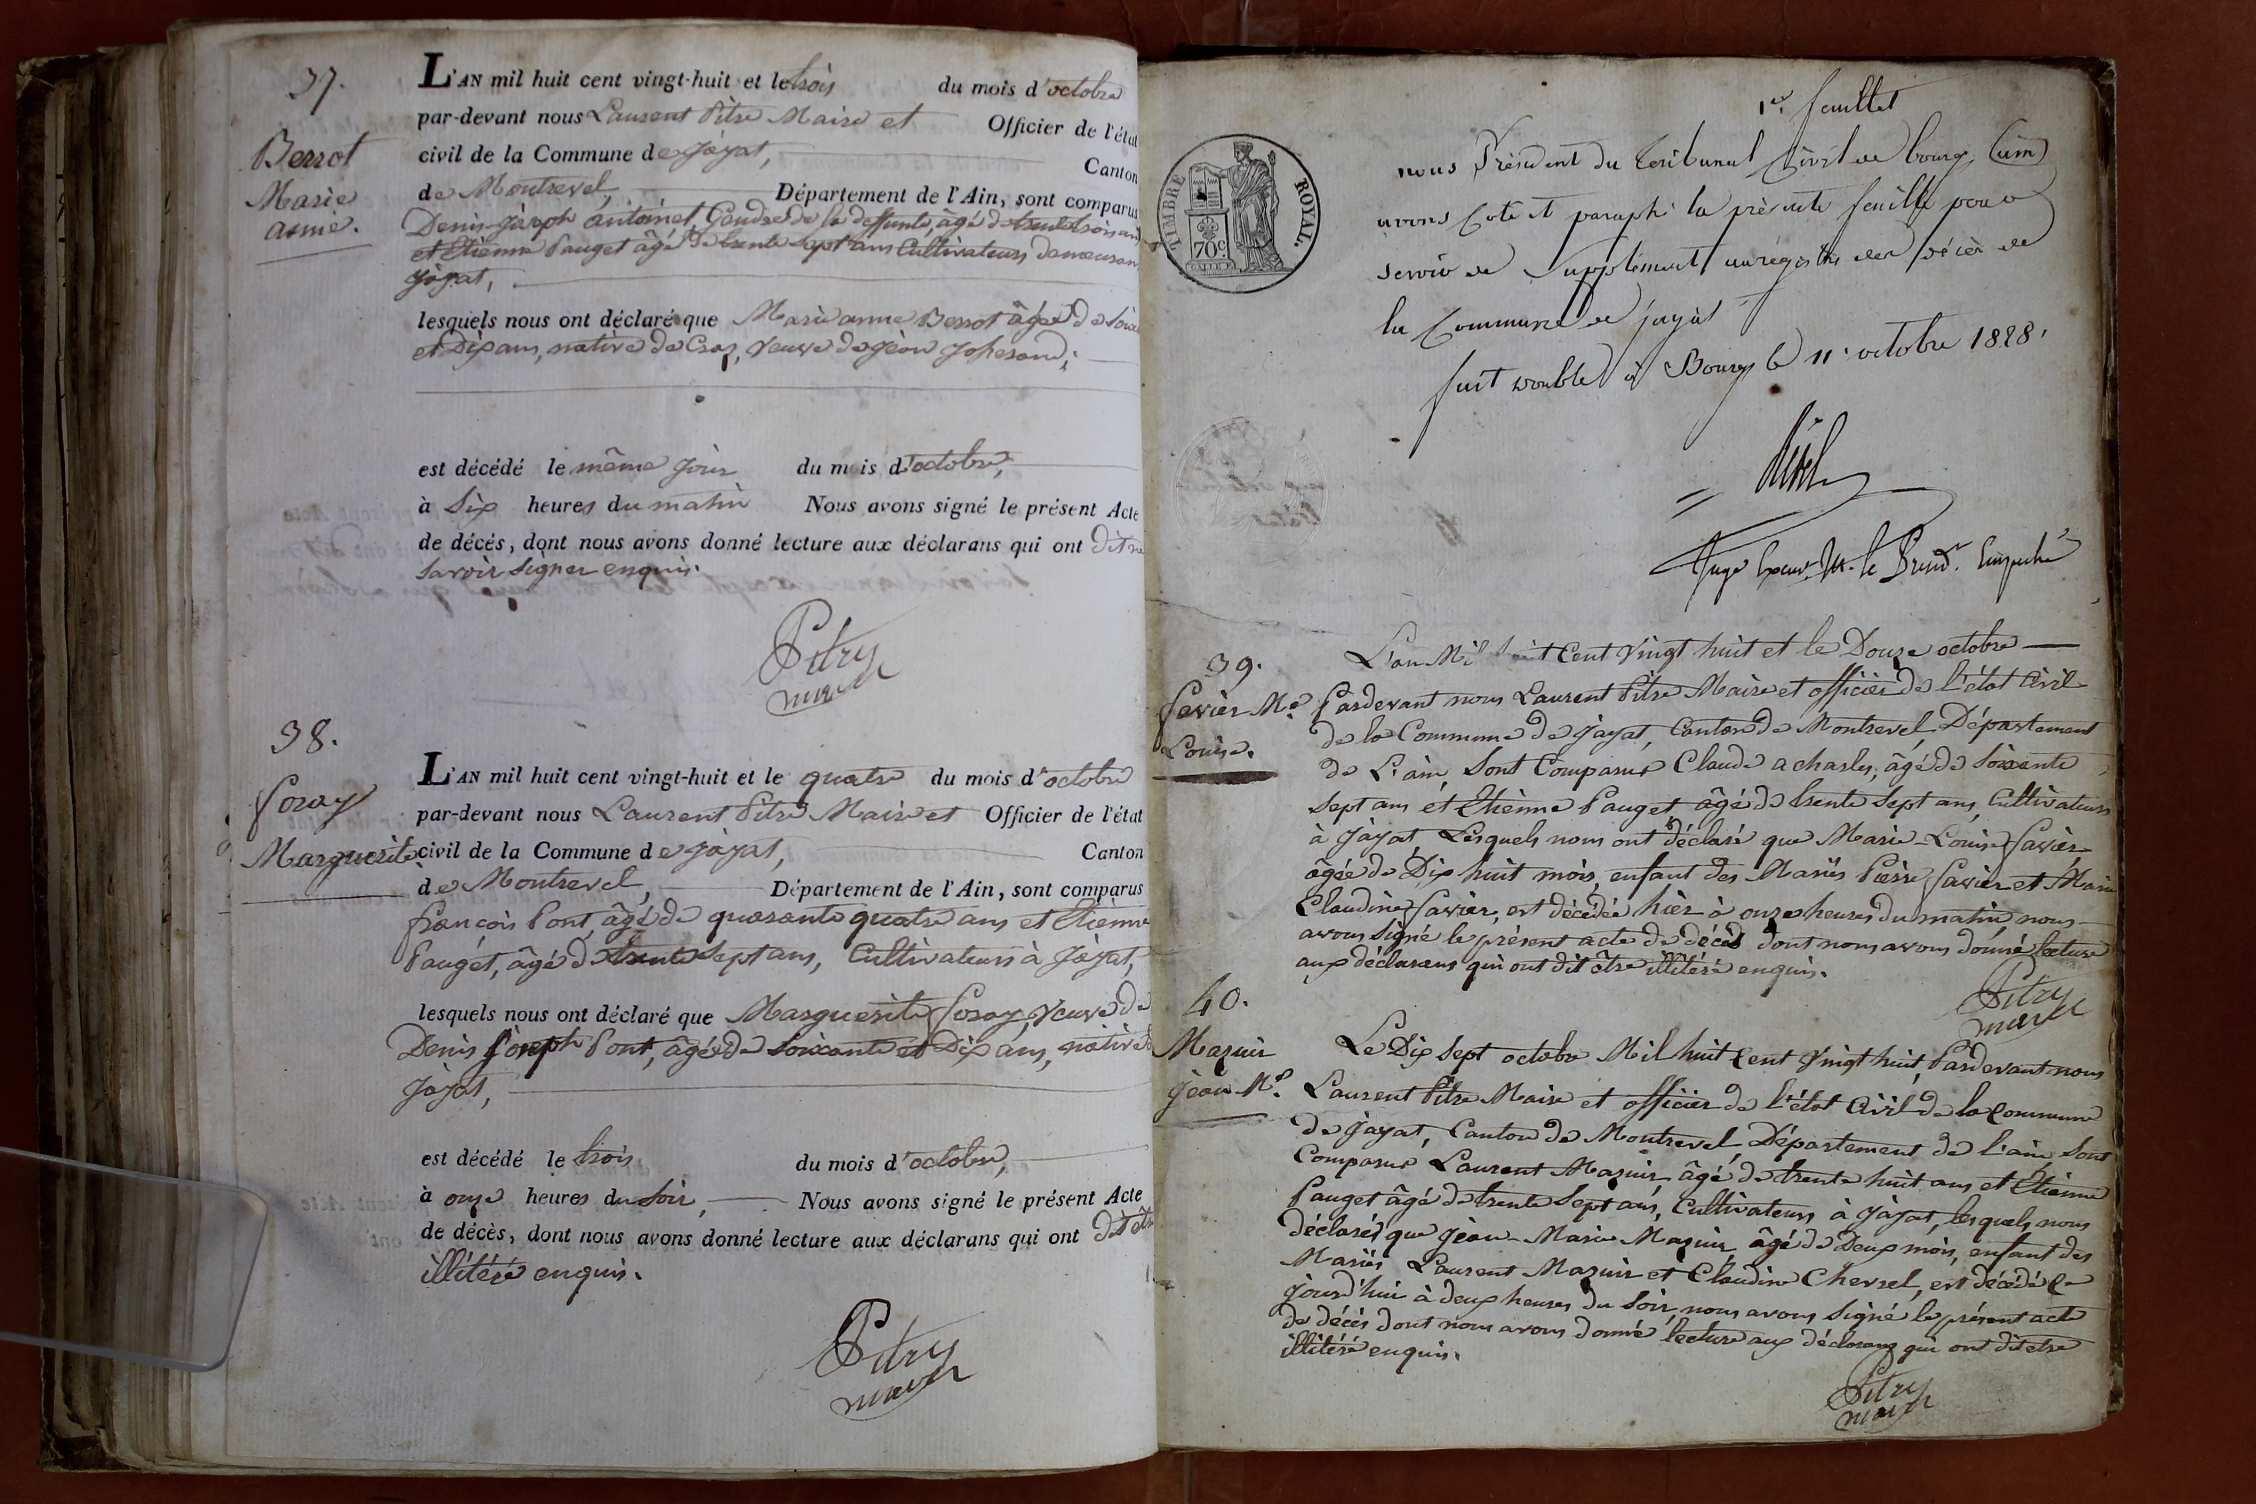 37.
Berrot
Marie
anne.
L'AN mil huit cent vingt-huit et le trois du mois d'octobre
par-devant nous Laurent Pitre Maire et Officier de l'état
civil de la Commune de Jayat, Canton
de Montrevel, Département de l'Ain, sont comparus
Denis Joseph antoinet, Gendre de la deffunte, âgé de trente trois ans
et Etienne Pauget âgé de trente sept ans Cultivateurs demeuran
Jayat,
lesquels nous ont déclaré que Marie anne Berrot âgée de Soix
et Dix ans, native de Cras, Veuve de Jéan
est décédé le même Jour du mois d'octobre,
à Six heures du matin Nous avons signé le présent Acte
de décés, dont nous avons donné lecture aux déclarans qui ont dit ne
Savoir Signer enquis.
Pitre
maire
38.
Foray
Marguerite
L'AN mil huit cent vingt-huit et le quatre du mois d'octobre
par-devant nous Laurent Pitre Maire et Officier de l'état
civil de la Commune de Jayat, Canton
de Montrevel, Département de l'Ain, sont comparus
françois Pont, âgé de quarante quatre ans et Etienne
Pauget, âgé de trente sept ans, Cultivateurs à Jayat,
lesquels nous ont déclaré que Marguerite Foray, Veuve de
Denis Joseph Pont, âgée de Soixante et Dix ans, native
Jayat,
est décédé le trois du mois d'octobre,
à onze heures du Soir, Nous avons signé le présent Acte
de décès, dont nous avons donné lecture aux déclarans qui ont dit être
illitéré enquis.
Pitre
maire
1er feuillet
TIMBRE ROYAL.
70c.
nous Président du Tribunal Civil de bourg, (ain)
avons Coté et paraphé la présente feuille pour
servir de Supplément au régistre des décès de
la Commune de jayat
fait double à Bourg le 11 octobre 1828.
Juge pour M. le Présidt. Empêché
39.
favier Me
Louise.
L'an Mil huit Cent Vingt huit et le Douze octobre
Pardevant nous Laurent Pitre Maire et officier de L'état Civil
de la Commune de Jayat, Canton de Montrevel, Département
de L'ain, Sont Comparus Claude acharles, âgé de Soixante
Sept ans et Etienne Pauget âgé de trente Sept ans, Cultivateurs
à Jayat, Lesquels nous ont déclaré que Marie-Louise Favier
âgée de Dix huit mois, enfant des Mariés Pierre Favier et Marie
Claudine Favier, est décédée hier à onze heures du matin, nous
avons Signé le présent acte de décès dont nous avons donné lecture
aux déclarans qui ont dit être illitéré enquis.
Pitre
maire
40.
Mazuir
Jean Me.
Le Dix Sept octobre Mil huit Cent Vingt huit, Pardevant nous
Laurent Pitre Maire et officier de l'état Civil de la Commune
de Jayat, Canton de Montrevel, Département de L'ain, Sont
Comparus Laurent Mazuir âgé de trente huit ans et Etienne
Pauget âgé de trente Sept ans, Cultivateurs à Jayat, lesquels nous
déclarés que Jéan-Marie Mazuir, âgé de Deux mois, enfant des
Mariés Laurent Mazuir et Claudine Chevrel, est décédé Ce
Jourd'hui à deux heures du Soir, nous avons Signé le présent acte
de décès dont nous avons donné lecture aux déclarans qui ont dit etre
illitéré enquis.
Pitre
maire